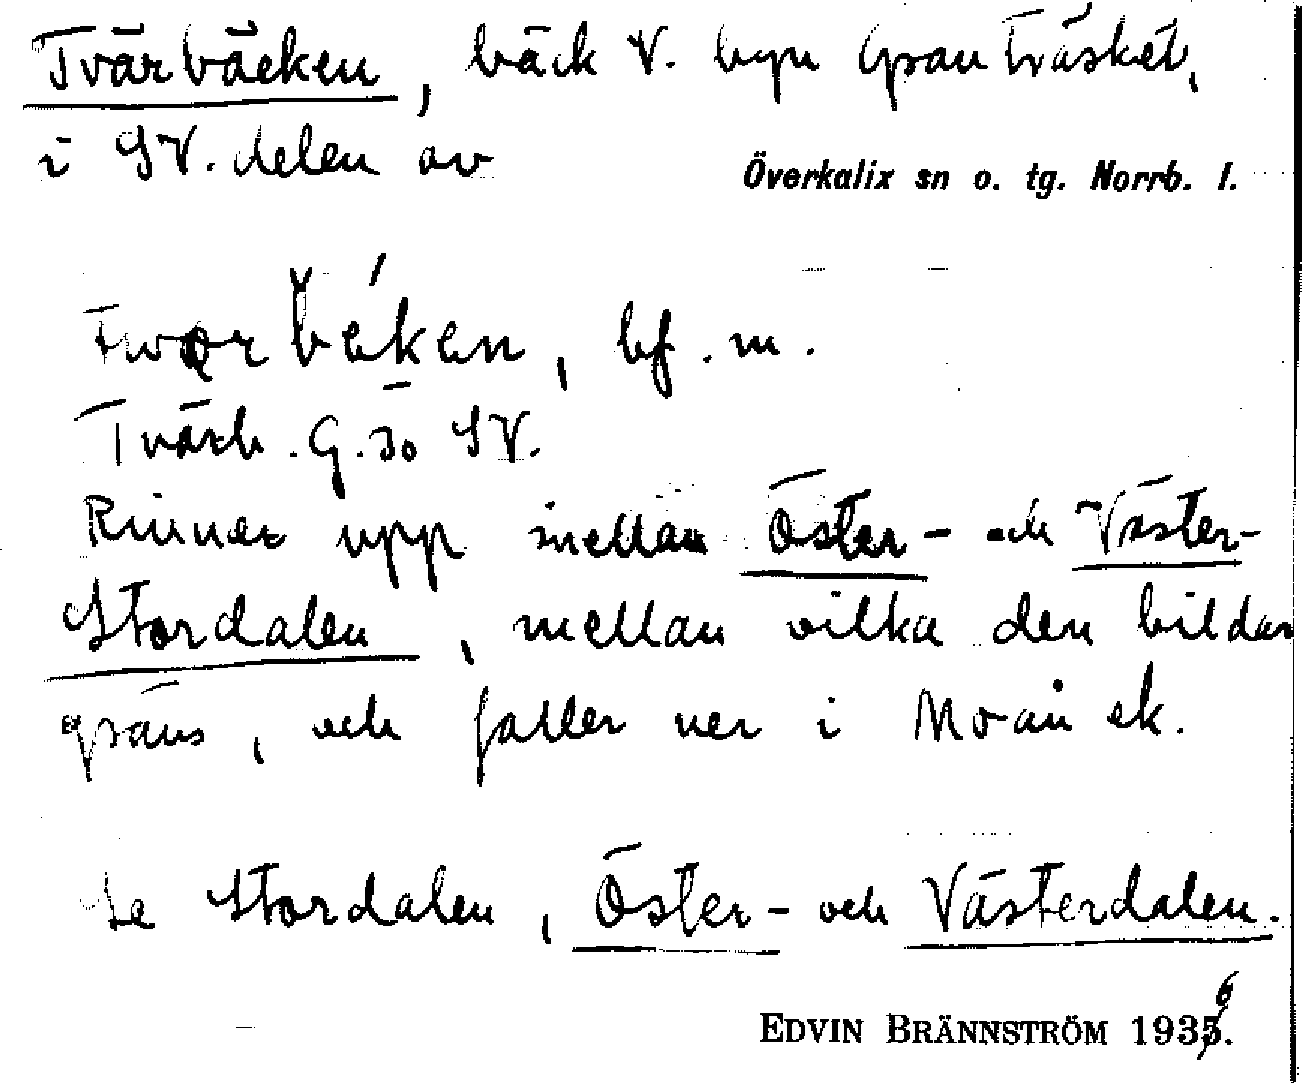 Tvärbäcken, bäck V. byn Granträsket,
i SV. delen av
Överkalix sn o. tg. Norrb. l.
bf. m.
Tvärb. G. so SV.
Rinner upp mellan Öster- och Väster-
Stordalen, mellan vilka den bildar
gräns, och faller ner i Moån ek.
Se Stordalen, Öster- och Västerdalen.
EDVIN BRÄNNSTRÖM 1936.